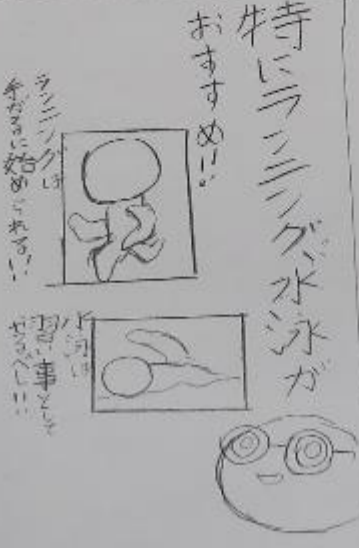 特にランニング、水泳が
おすすめ!!
ランニングは
手がるに始められる!!
水泳は
習い事として
やるべし!!